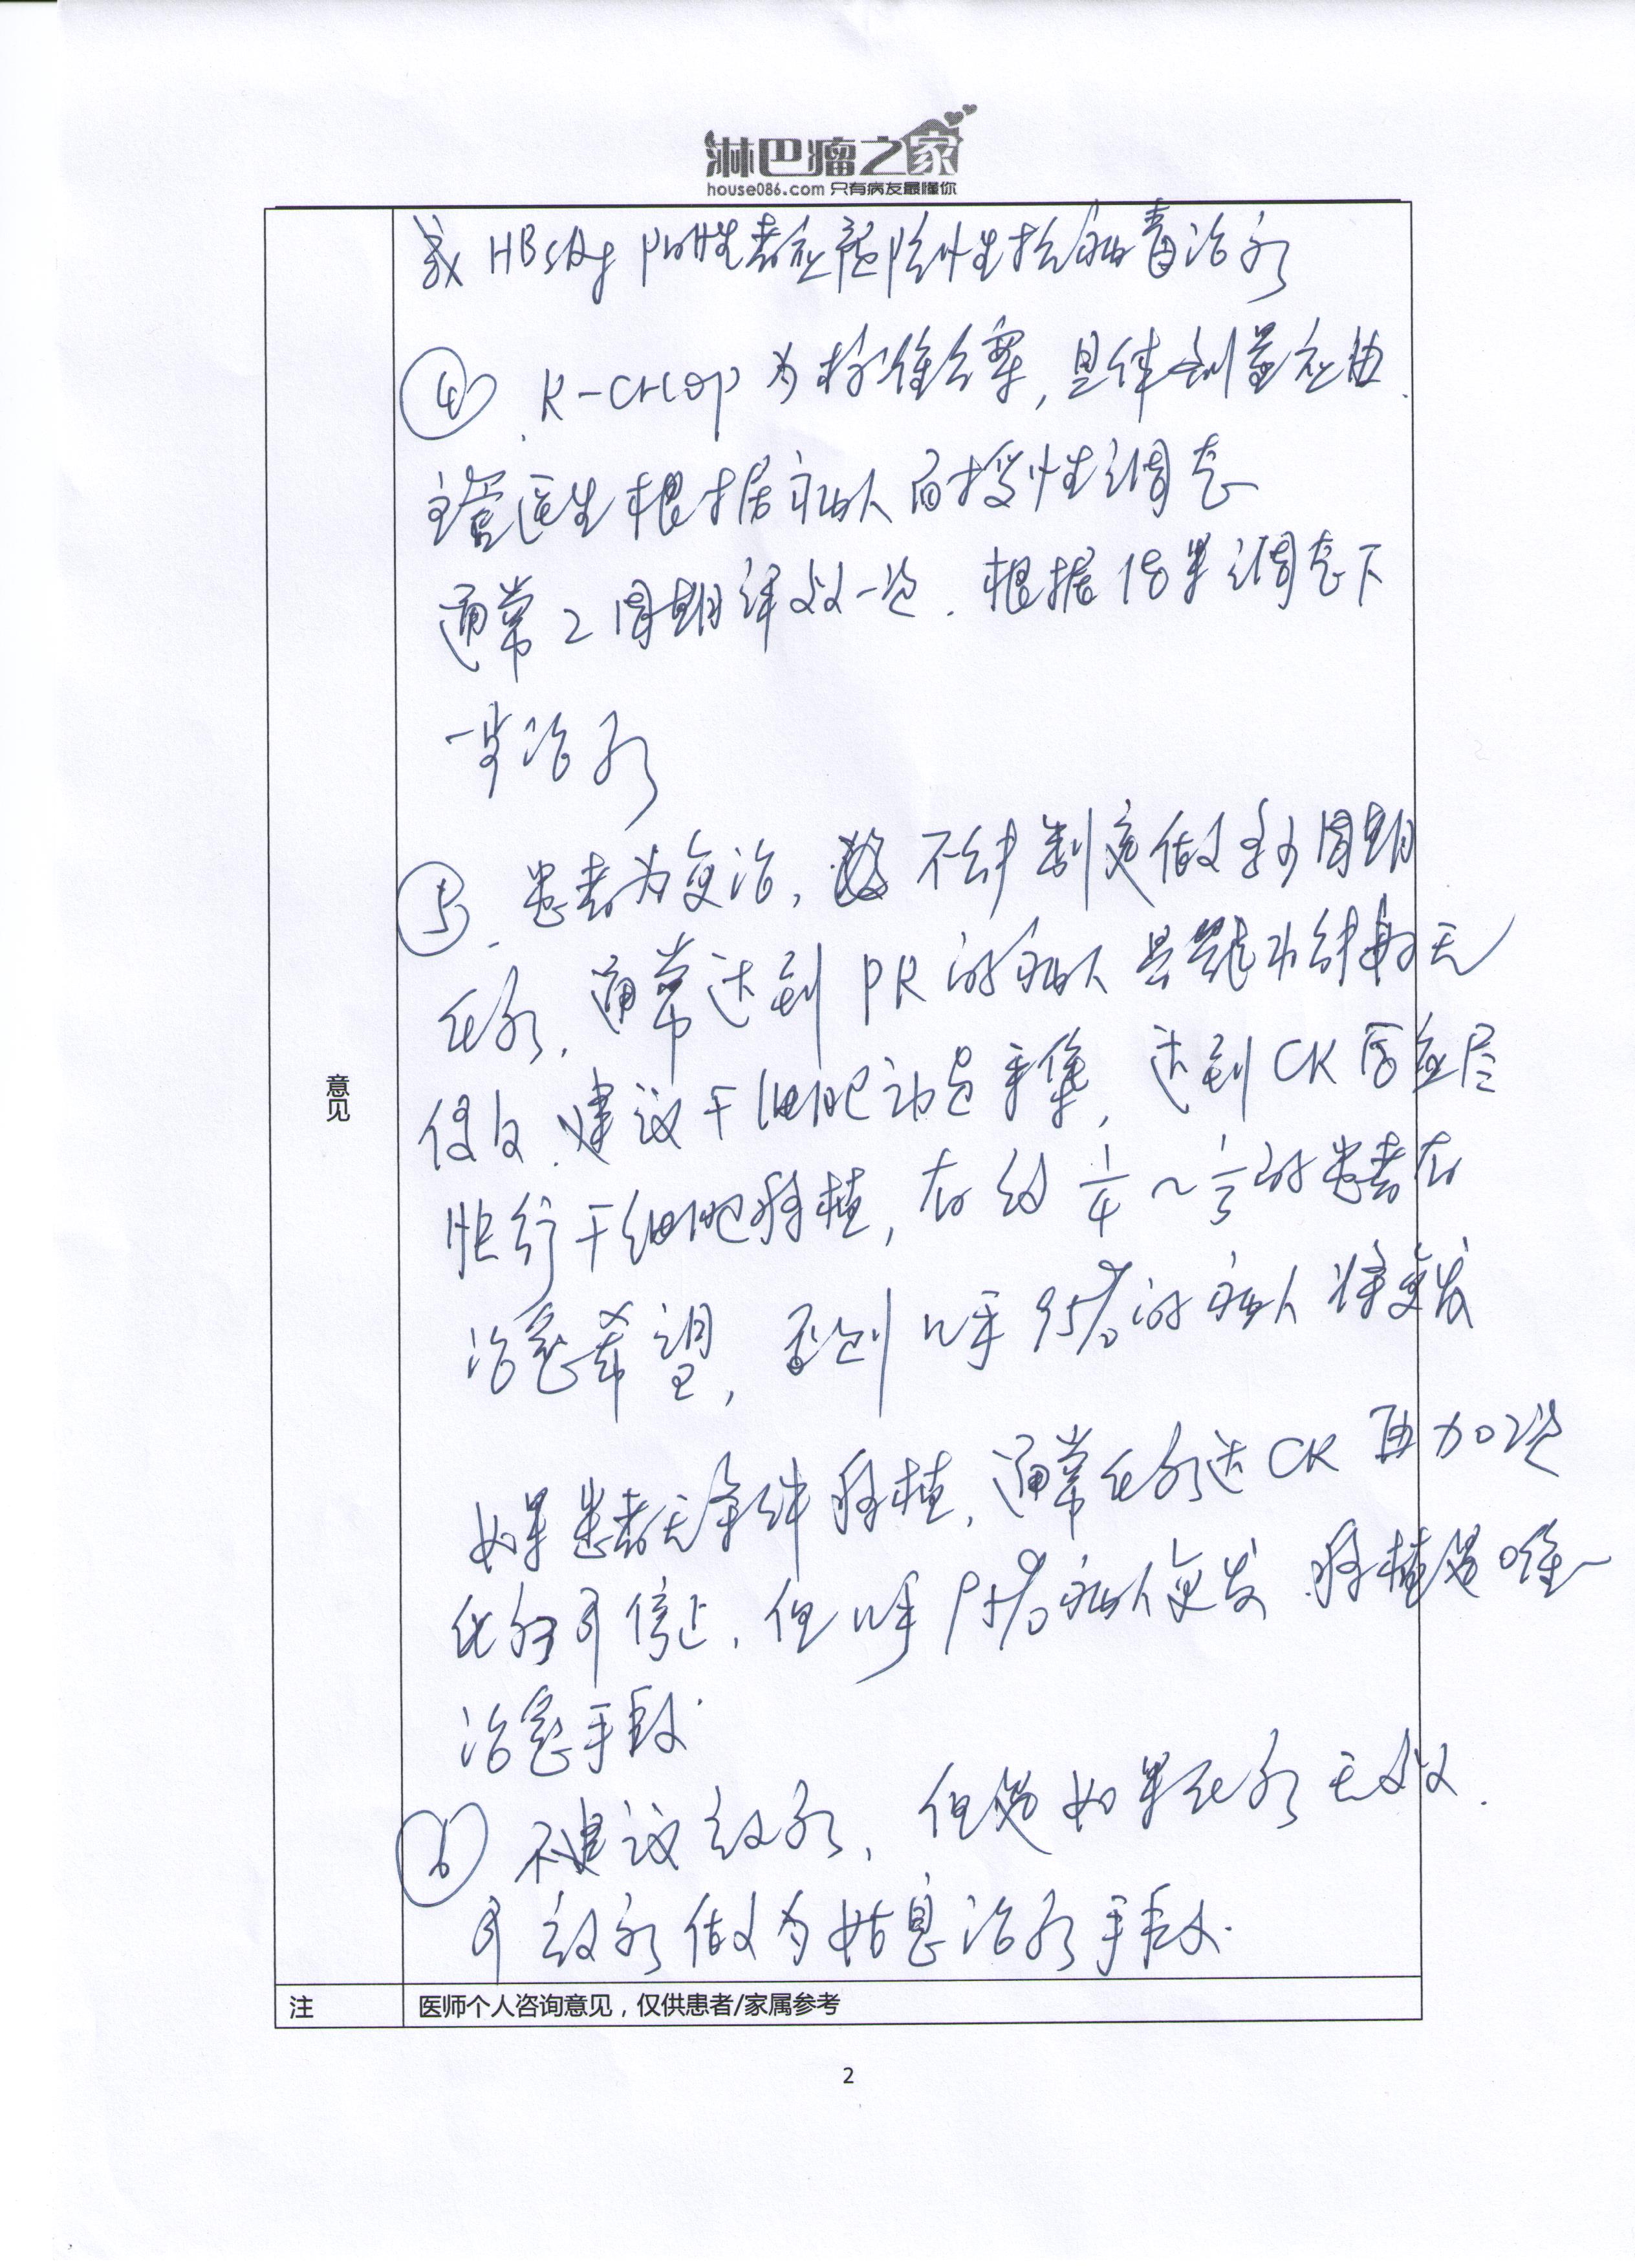 淋巴瘤之家
house086.com 只有病友最懂你
或 HBsAg 阳性者应预防性抗病毒治疗
④ R-CHOP 为标准方案，具体剂量应由
主管医生根据病人耐受性调整
通常 2 周期评效一次．根据结果调整下
一步治疗
⑤．患者为复治，不会制定做多少周期
化疗．通常达到 PR 的病人 骨髓
侵犯．建议干细胞动员采集，达到 CR 后应尽
快行干细胞移植，有约 1/4～1/3 的患者有
治愈希望，否则几乎 95% 的病人将复发
如果患者无条件移植，通常化疗达 CR 再加2次
化疗可停止．但几乎 95% 病人复发 移植是唯一
治愈手段．
⑥ 不建议放疗，但是如果化疗无效．
可放疗做为姑息治疗手段．
意见
注 医师个人咨询意见，仅供患者/家属参考
2